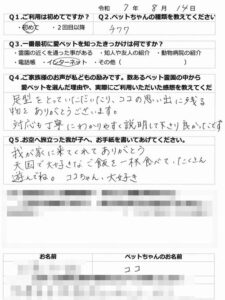 令和 7年 8月 1日
Q1.ご利用は初めてですか? Q2.ペットちゃんの種類を教えてください
・初めて ・2回目以降 チワワ
Q3.一番最初に愛ペットを知ったきっかけは何ですか?
・霊園の近くを通った事がある ・知人や友人の紹介 ・動物病院の紹介
・電話帳 ・インターネット ・その他( )
Q4.ご家族様のお声が私どもの励みです。数あるペット霊園の中から
愛ペットを選んだ理由や、実際にご利用いただいた感想を教えてくだ
足型をとっていただいたり、ココの思い出に残る
物をありがとうございます。
対応も丁寧にわかりやすく説明して下さり良かったです
Q5.お空へ旅立った我が子へ、お手紙を書いてあげてください。
我が家に来てくれてありがとう
天国で大好きなご飯を一杯食べて、たくさん
遊んでね。ココちゃん、大好き
お名前 ペットちゃんのお名前
ココ